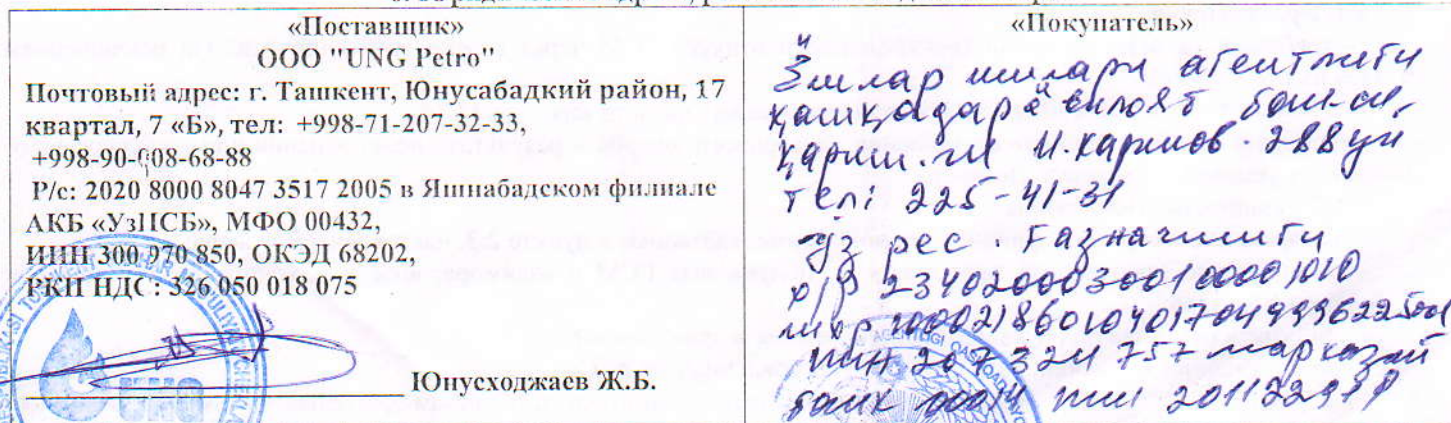 «Поставщик»
ООО "UNG Petro"
Почтовый адрес: г. Ташкент, Юнусабадкий район, 17
квартал, 7 «Б», тел: +998-71-207-32-33,
+998-90-008-68-88
Р/с: 2020 8000 8047 3517 2005 в Яшнабадском филиале
АКБ «УзПСБ», МФО 00432,
ИНН 300 970 850, ОКЭД 68202,
РКП НДС: 326 050 018 075
Юнусходжаев Ж.Б.
«Покупатель»
Ёшлар ишлари агентлиги
қашқадарё вилоят бош-си,
қарши. ш И. Каримов 288 уй
тел: 225-41-31
ўз рес Ғазначилиги
х/р 23402000300100001010
ш х/р
инн марказий
банк 00014 инн